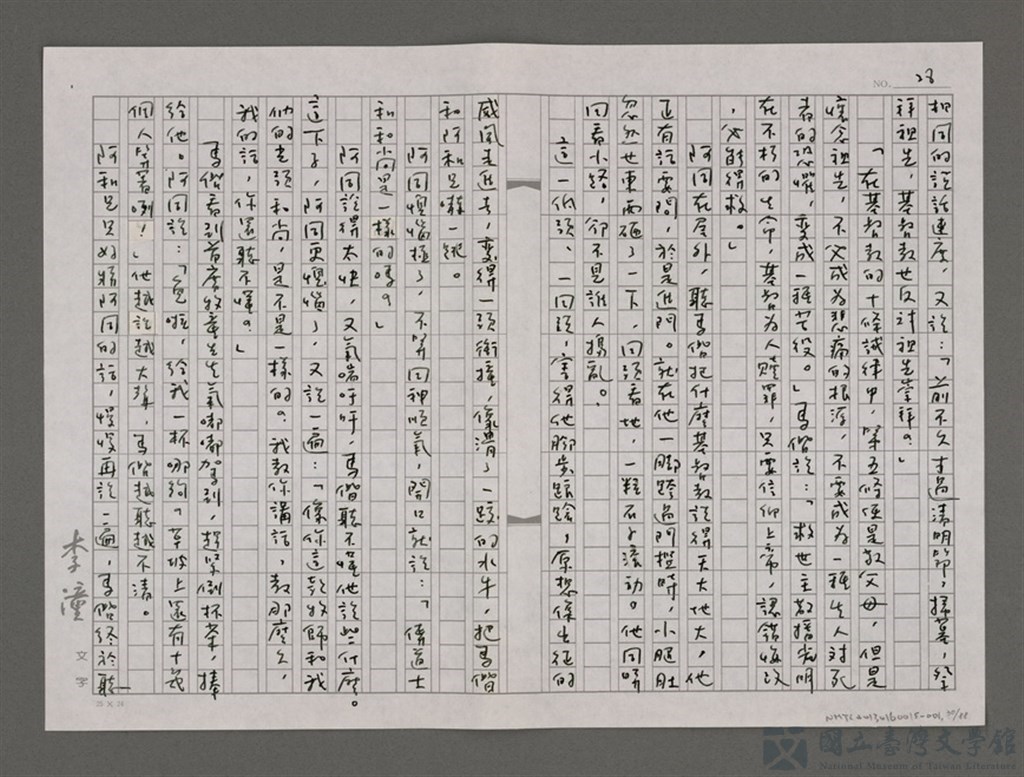 NO. 28
相同的說話速度，又說：「前不久才過清明節，掃墓，祭
拜祖先，基督教也反對祖先崇拜？」
「在基督教的十條誡律中，第五條便是敬父母，但是
懷念祖先，不必成為悲痛的根源，不要成為一種生人對死
者的恐懼，變成一種苦役。」馬偕說：「救世主散播光明
在不朽的生命，基督為人贖罪，只要信仰上帝，認錯悔改
，必能得救。」
阿同在屋外，聽馬偕把什麼基督教說得天大地大，他
正有話要問，於是進門。就在他一腳跨過門檻時，小腿肚
忽然也東西碰了一下，回頭看地，一粒石子滾動。他同時
回看小路，卻不是誰人搗亂。
這一低頭、一回頭，害得他腳步踉蹌，原想像出征的
威風走進去，變得一頭衝撞，像潰了一跤的水牛，把馬偕
和阿和兄嚇一跳。
阿同懊惱極了，不等回神順氣，開口就說：「傳道士
和和尚是一樣的嗎？」
阿同說得太快，又氣喘吁吁，馬偕聽不懂他說些什麼。
這下子，阿同更懊惱了，又說一遍：「像你這款牧師和我
們的光頭和尚，是不是一樣的？我教你講話，教那麼久，
我的話，你還聽不懂？」
馬偕看到首席牧童先生氣嘟嘟駕到，趕緊倒杯茶，捧
給他。阿同說：「免啦，給我一杯哪夠？草坡上還有十幾
個人等著喲！」他越說越大聲，馬偕越聽越不清。
阿和兄只好將阿同的話，慢慢再說一遍，馬偕終於聽
李潼
文字
25 X 24
國立臺灣文學館
National Museum of Taiwan Literature